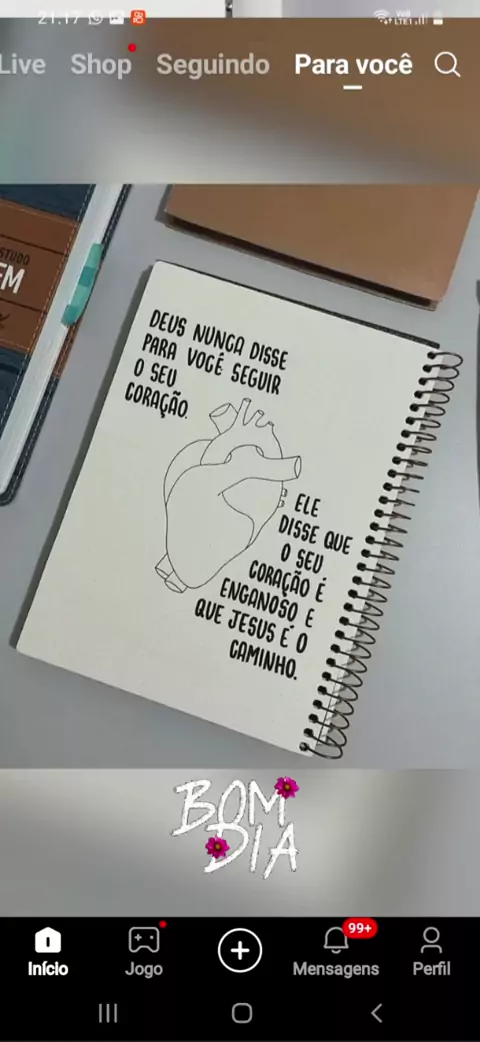 21:17
VoD
LTE1
Live Shop Seguindo Para você
STUDO
DEUS NUNCA DISSE
PARA VOCÊ SEGUIR
O SEU
CORAÇÃO.
ELE
DISSE QUE
O SEU
CORAÇÃO É
ENGANOSO E
QUE JESUS É O
CAMINHO.
BOM
DIA
99+
Início Jogo Mensagens Perfil